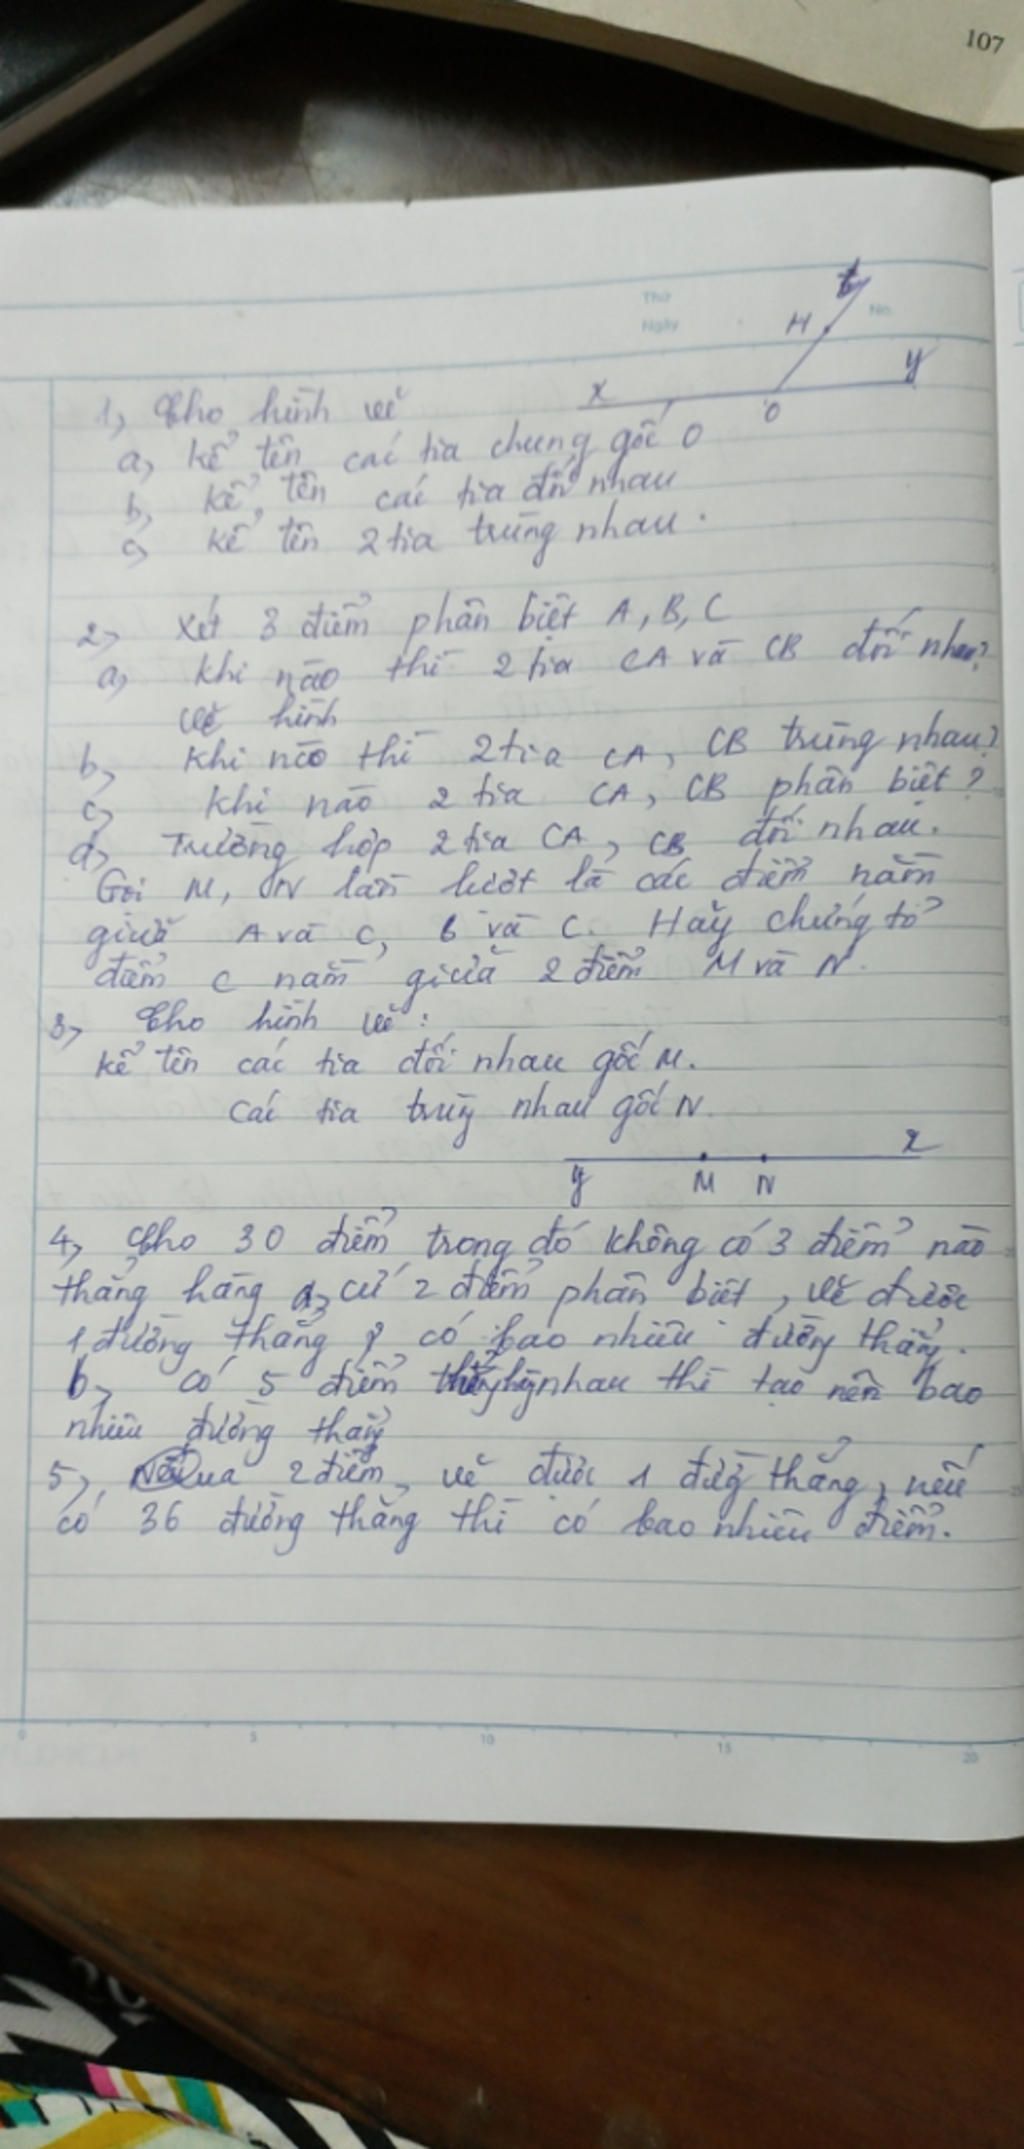 107
Thứ
Ngày
No.
t
M
x
y
O
1, Cho hình vẽ
a, kể tên các tia chung gốc O
b, kể tên các tia đối nhau
c, kể tên 2 tia trùng nhau.
2, Xét 3 điểm phân biệt A, B, C
a, khi nào thì 2 tia CA và CB đối nhau?
vẽ hình
b, khi nào thì 2 tia CA, CB trùng nhau?
c, khi nào 2 tia CA, CB phân biệt?
d, Trường hợp 2 tia CA, CB đối nhau.
Gọi M, N lần lượt là các điểm nằm
giữa A và C, B và C. Hãy chứng tỏ
điểm C nằm giữa 2 điểm M và N.
3, Cho hình vẽ:
kể tên các tia đối nhau gốc M.
Các tia trùng nhau gốc N.
y M N x
4, Cho 30 điểm trong đó không có 3 điểm nào
thẳng hàng a, cứ 2 điểm phân biệt, vẽ được
1 đường thẳng có bao nhiêu đường thẳng.
b, có 5 điểm nhau thì tạo nên bao
nhiêu đường thẳng
5, 2 điểm, vẽ được 1 đường thẳng, nếu
có 36 đường thẳng thì có bao nhiêu điểm.
0 5 10 15 20